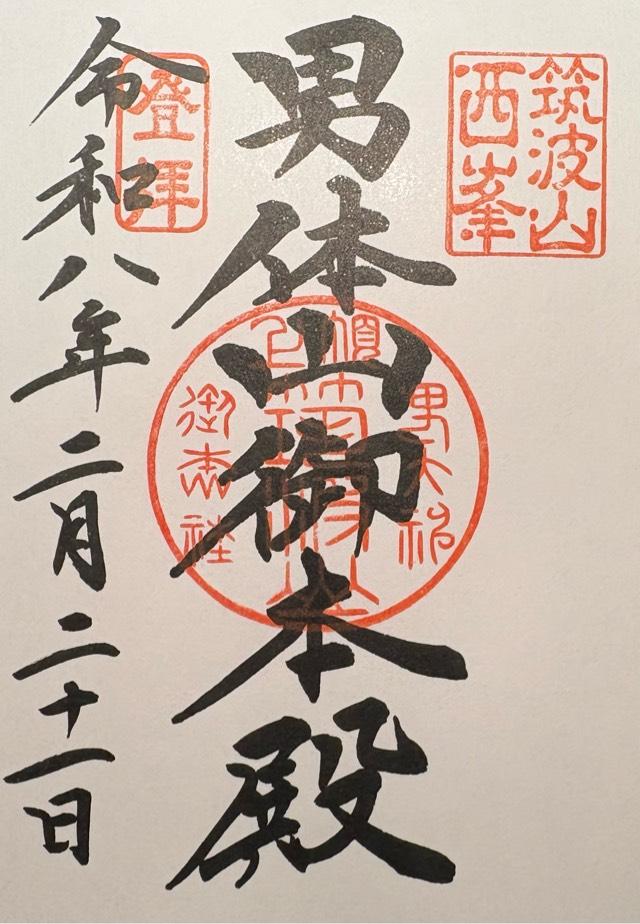 筑波山
西峯
男体山御本殿
登拝
令和八年二月二十一日